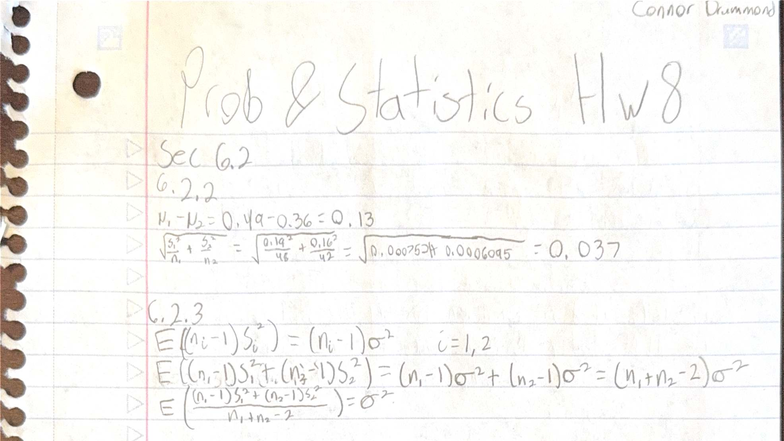 Connor Drummond
Prob & Statistics Hw8
Sec 6.2
6.2.2
μ₁-μ₂ = 0.49-0.36 = 0.13
√(S₁²/n₁ + S₂²/n₂) = √(0.19²/48 + 0.16²/42) = √(0.000752+ 0.0006095) = 0.037
6.2.3
E((nᵢ-1)Sᵢ²) = (nᵢ-1)σ² i=1,2
E((n₁-1)S₁²+(n₂-1)S₂²) = (n₁-1)σ²+(n₂-1)σ² = (n₁+n₂-2)σ²
E(((n₁-1)S₁²+(n₂-1)S₂²)/(n₁+n₂-2)) = σ²